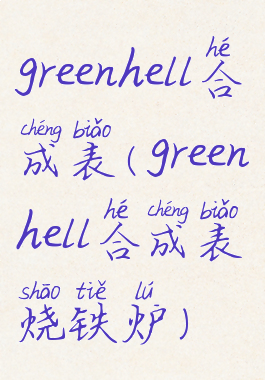 hé
greenhell合
chéng biǎo
成表(green
hé chéng biǎo
hell合成表
shāo tiě lú
烧铁炉)